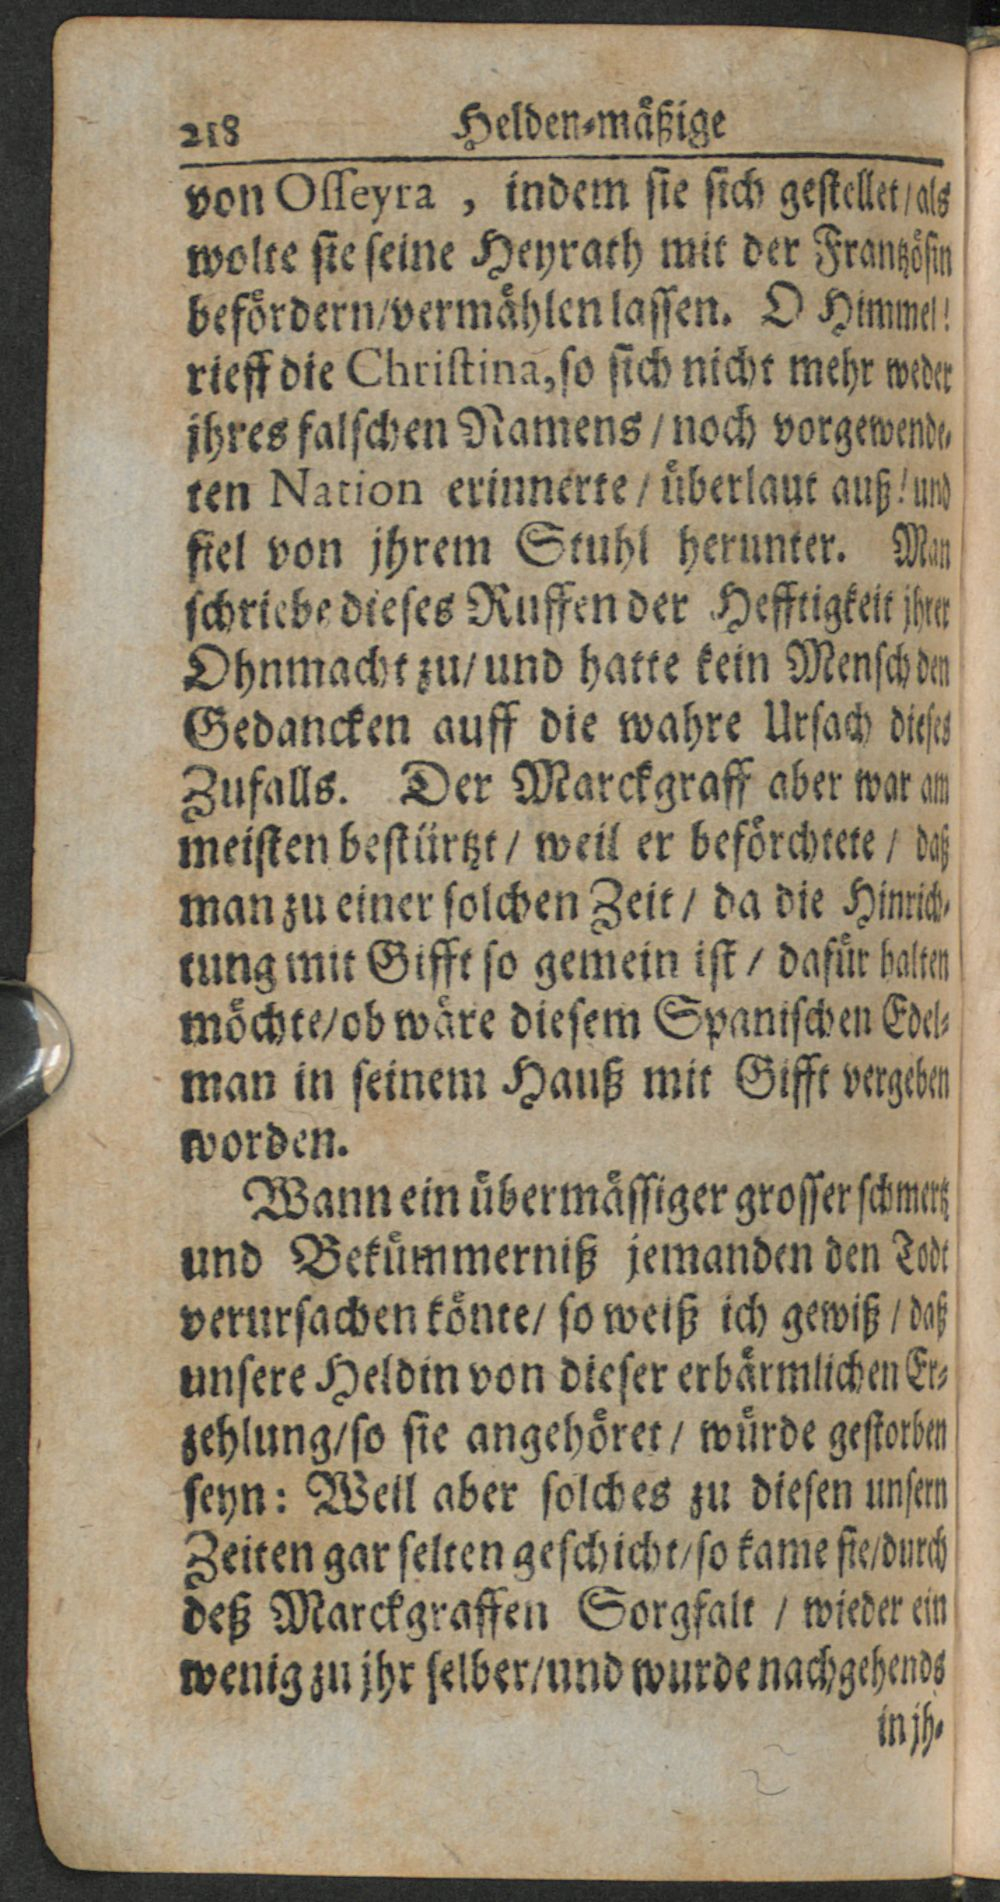 218 Helden-mäßige
von Osseyra , indem sie sich gestellet/als
wolte sie seine Heyrath mit der Frantzösin
befördern/vermählen lassen. O Himmel!
rieff die Christina, so sich nicht mehr weder
jhres falschen Namens / noch vorgewende-
ten Nation erinnerte / überlaut auß! und
fiel von jhrem Stuhl herunter. Man
schriebe dieses Ruffen der Hefftigkeit jhrer
Ohnmacht zu/ und hatte kein Mensch den
Gedancken auff die wahre Ursach dieses
Zufalls. Der Marckgraff aber war am
meisten bestürtzt / weil er beförchtete / daß
man zu einer solchen Zeit / da die Hinrich-
tung mit Gifft so gemein ist / dafür halten
möchte/ob wäre diesem Spanischen Edel-
man in seinem Hauß mit Gifft vergeben
worden.
Wann ein übermässiger grosser schmertz
und Bekümmerniß jemanden den Todt
verursachen könte/ so weiß ich gewiß / daß
unsere Heldin von dieser erbärmlichen Er-
zehlung/so sie angehöret / würde gestorben
seyn: Weil aber solches zu diesen unsern
Zeiten gar selten geschicht/so kame sie/durch
deß Marckgraffen Sorgfalt / wieder ein
wenig zu jhr selber/und wurde nachgehends
in jh-